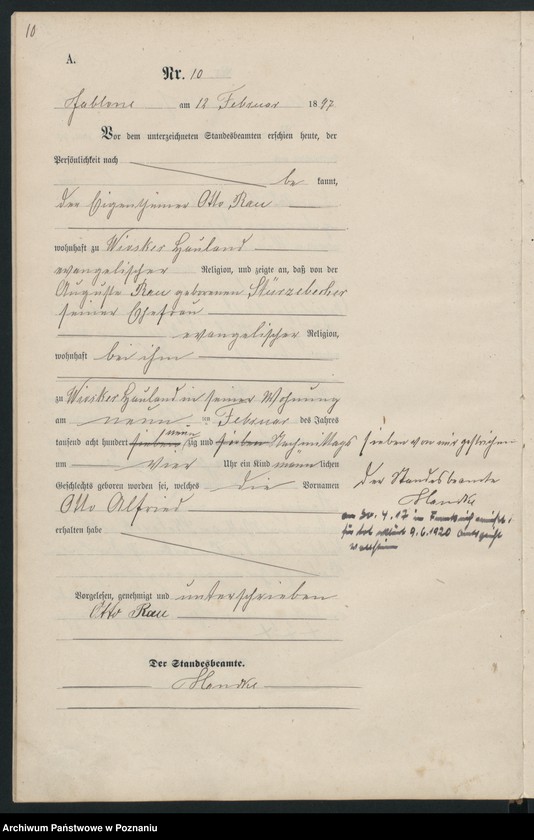 10
A.
Nr. 10
Jablone am 12 Februar 1897
Vor dem unterzeichneten Standesbeamten erschien heute, der
Persönlichkeit nach
be kannt,
der Eigenthümer Otto Rau
wohnhaft zu Wiosker Hauland
evangelischer Religion, und zeigte an, daß von der
Auguste Rau geborenen Stürzebecher
seiner Ehefrau
evangelischer Religion,
wohnhaft bei ihm
zu Wiosker Hauland in seiner Wohnung
am neun ten Februar des Jahres
tausend acht hundert sieben neun zig und sieben Nachmittags
um vier Uhr ein Kind männ lichen
Geschlechts geboren worden sei, welches die Vornamen
Otto Alfried
erhalten habe
Vorgelesen, genehmigt und unterschrieben
Otto Rau
Der Standesbeamte.
Handke
sieben von mir gestrichen
Der Standesbeamte
Handke
am 30. 4. 17 in Frankreich
für tot erklärt 9.6.1920 Amtsgericht
Wollstein
Archiwum Państwowe w Poznaniu